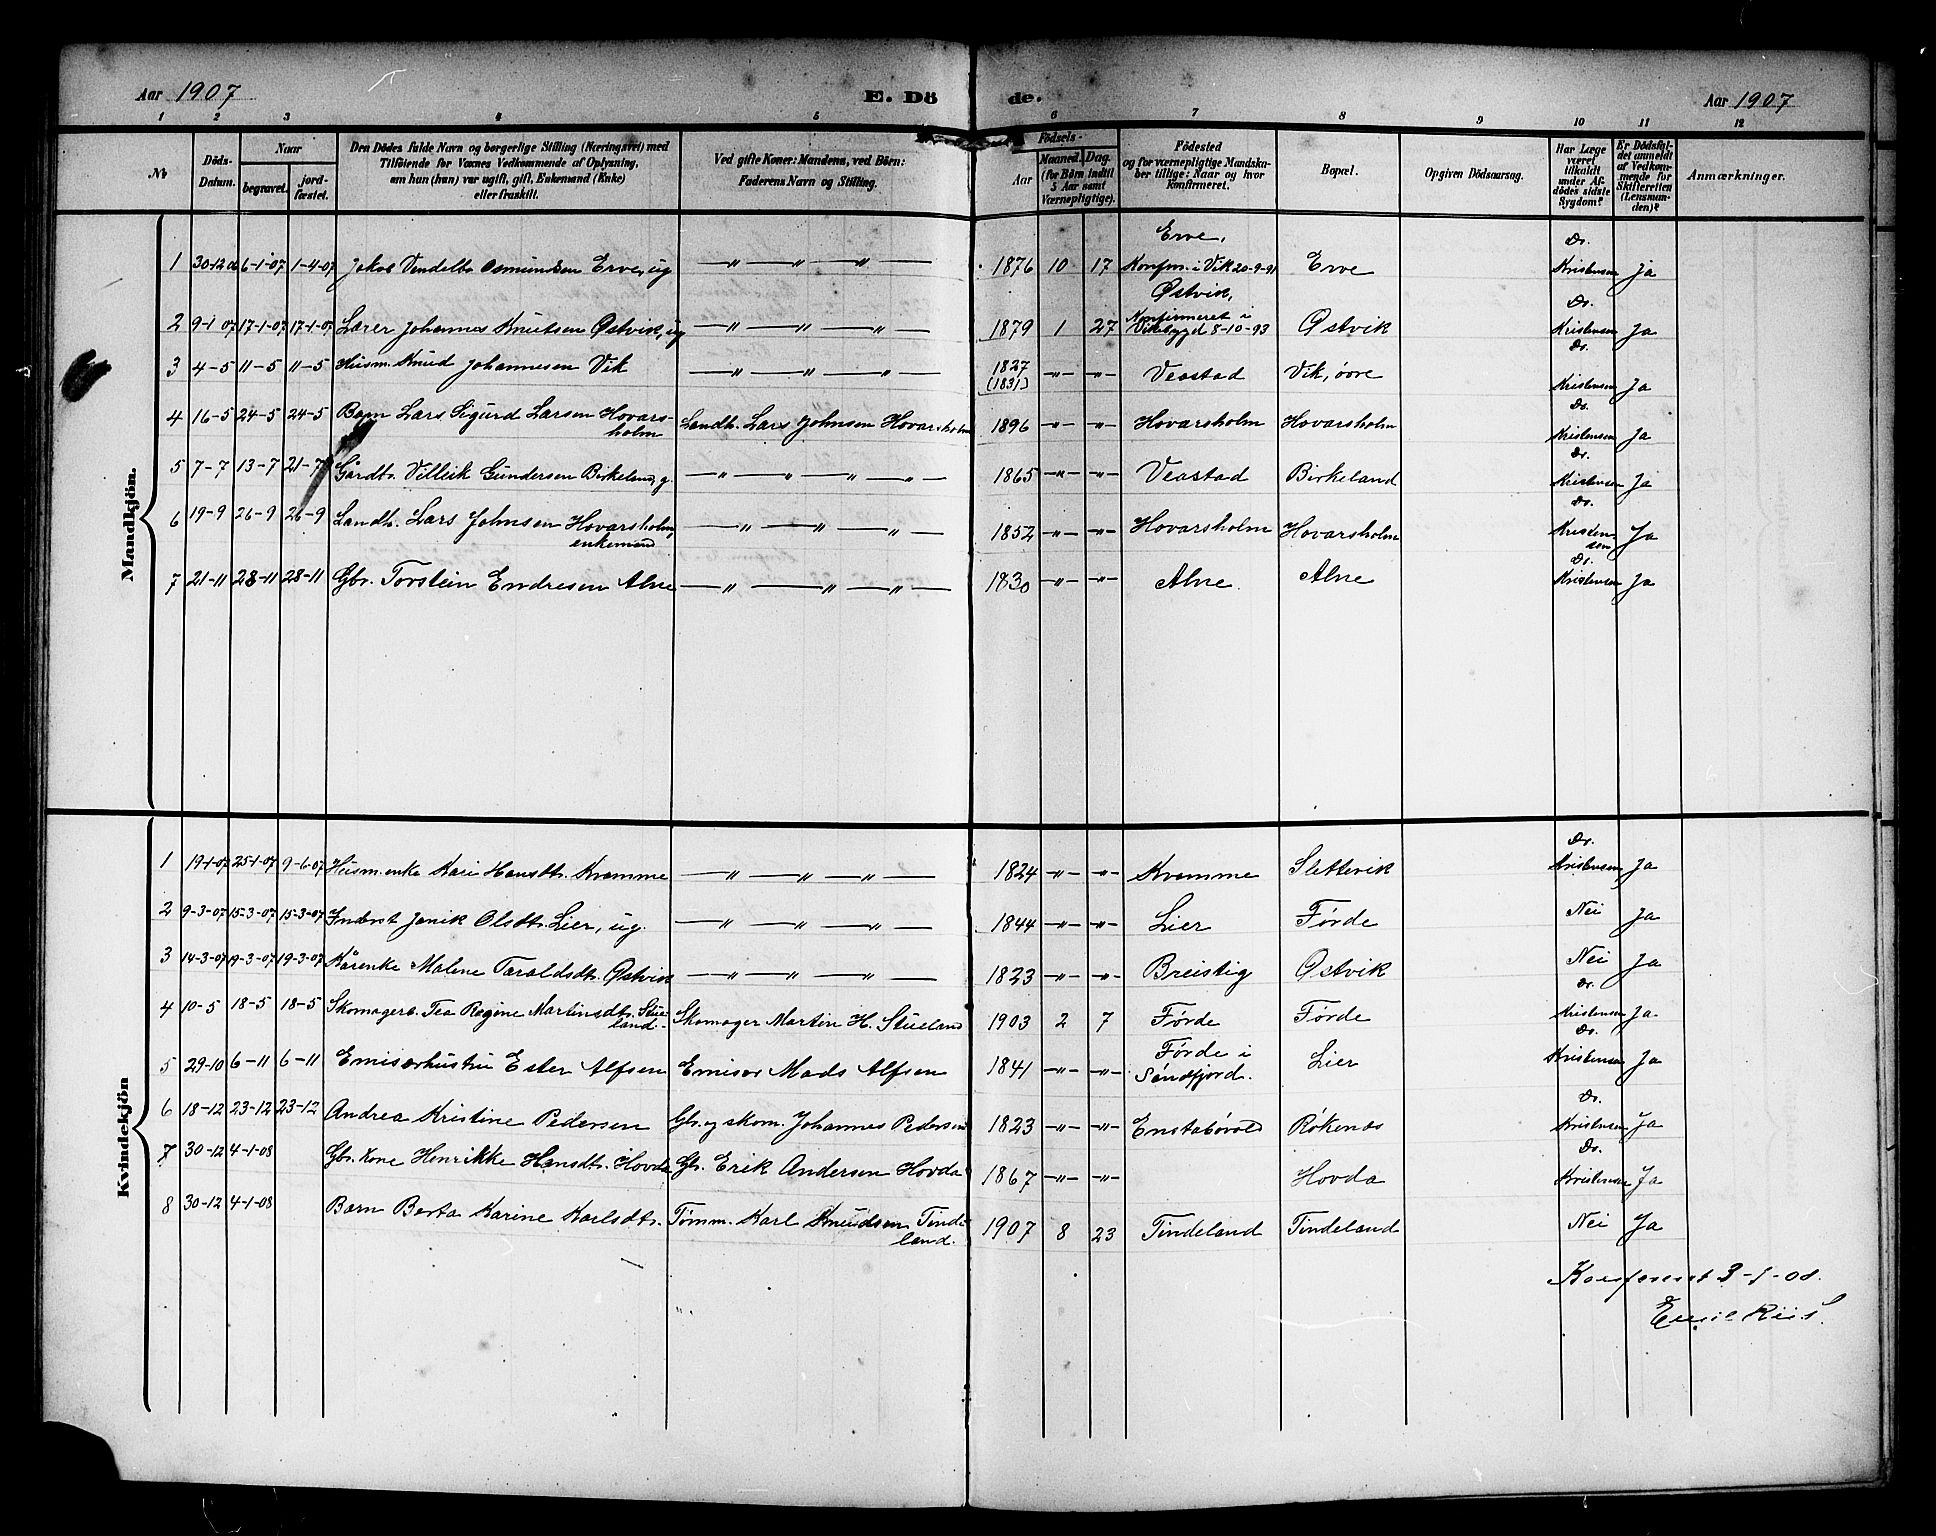 Aar 1907 E. Dö de. Aar 1907
1 2 3 4 5 6 7 8 9 10 11 12
№ | Döds-Datum. | Naar begravet. | jordfæstet. | Den Dödes fulde Navn og borgerlige Stilling (Næringsvei) med Tilföiende for Voxnes Vedkommende af Oplysning, om han (hun) var ugift, gift, Enkemand (Enke) eller fraskilt. | Ved gifte Koner: Mandens, ved Börn: Faderens Navn og Stilling. | Födsels- Aar | Maaned. | Dag. (for Börn indtil 5 Aar samt Værnepligtige). | Födested og for værnepligtige Mandskaber tillige: Naar og hvor Konfirmeret. | Bopæl. | Opgiven Dödsaarsag. | Har Læge været tilkaldt under Afdödes sidste Sygdom? | Er Dödsfaldet anmeldt af Vedkommende for Skifteretten (Lensmanden)? | Anmærkninger.
Mandkjön.
1 30-12 06 6-1-07 1-4-07 Jakob Vendelbo Osmundsen Erve, ug — " — " — " — 1876 10 17 Erve, Konfirm. i Vik 20-9-91 Erve Dr. Kristensen Ja
2 9-1 07 17-1-07 17-1-07 Lærer Johannes Knutsen Østvik, ug — " — " — " — 1879 1 27 Østvik, Konfirmeret i Vikebygd 8-10-93 Østvik Dr. Kristensen Ja
3 4-5 11-5 11-5 Husm. Knud Johannesen Vik — " — " — " — 1827 (1831) -"- -"- Veastad Vik, øvre Dr. Kristensen Ja
4 16-5 24-5 24-5 Barn Lars Sigurd Larsen Hovarsholm Landh. Lars Johnsen Hovarsholm 1896 -"- -"- Hovarsholm Hovarsholm Dr. Kristensen Ja
5 7-7 13-7 21-7 Gårdbr. Villeik Gundersen Birkeland, g. — " — " — " — " — 1865 -"- -"- Veastad Birkeland Dr. Kristensen Ja
6 19-9 26-9 26-9 Landh. Lars Johnsen Hovarsholm, enkemand — " — " — " — 1852 -"- -"- Hovarsholm Hovarsholm Dr. Kristensen Ja
7 21-11 28-11 28-11 Gbr. Torstein Endresen Alne — " — " — " — 1830 -"- -"- Alne. Alne Dr. Kristensen Ja
Kvindekjön
1 19-1-07 25-1-07 9-6-07 Husm. enke Kari Hansdtr. Kromme — " — " — " — 1824 -"- -"- Kromme Slettevik Dr. Kristensen Ja
2 9-3-07 15-3-07 15-3-07 Inderst Janik Olsdtr. Lier, ug. — " — " — " — 1844 -"- -"- Lier Førde Nei Ja
3 14-3-07 19-3-07 19-3-07 Kårenke Malene Taraldsdtr. Østvik — " — " — " — 1823 -"- -"- Breistig Østvik Nei Ja
4 10-5 18-5 18-5 Skomagerb. Tea Regine Martinsdtr. Stueland. Skomager Martin H. Stueland 1903 2 7 Førde Førde Dr. Kristensen Ja
5 29-10 6-11 6-11 Emisærhustru Ester Alfsen Emisær Mads Alfsen 1841 -"- -"- Førde i Søndfjord. Lier Dr. Kristensen Ja
6 18-12 23-12 23-12 Andrea Kristine Pedersen Gbr. og skom. Johannes Pedersen 1823 -"- -"- Enstabøvold Røkenes Dr. Kristensen Ja
7 30-12 4-1-08 Gbr. kone Henrikke Hansdtr. Hovda Gbr. Erik Andersen Hovda 1867 -"- -"- Hovda Dr. Kristensen Ja
8 30-12 4-1-08 Barn Berta Karine Karlsdtr. Tømm. Karl Knudsen Tindeland. 1907 8 23 Tindeland Tindeland Nei Ja
3-1-08.
Emil Riis.